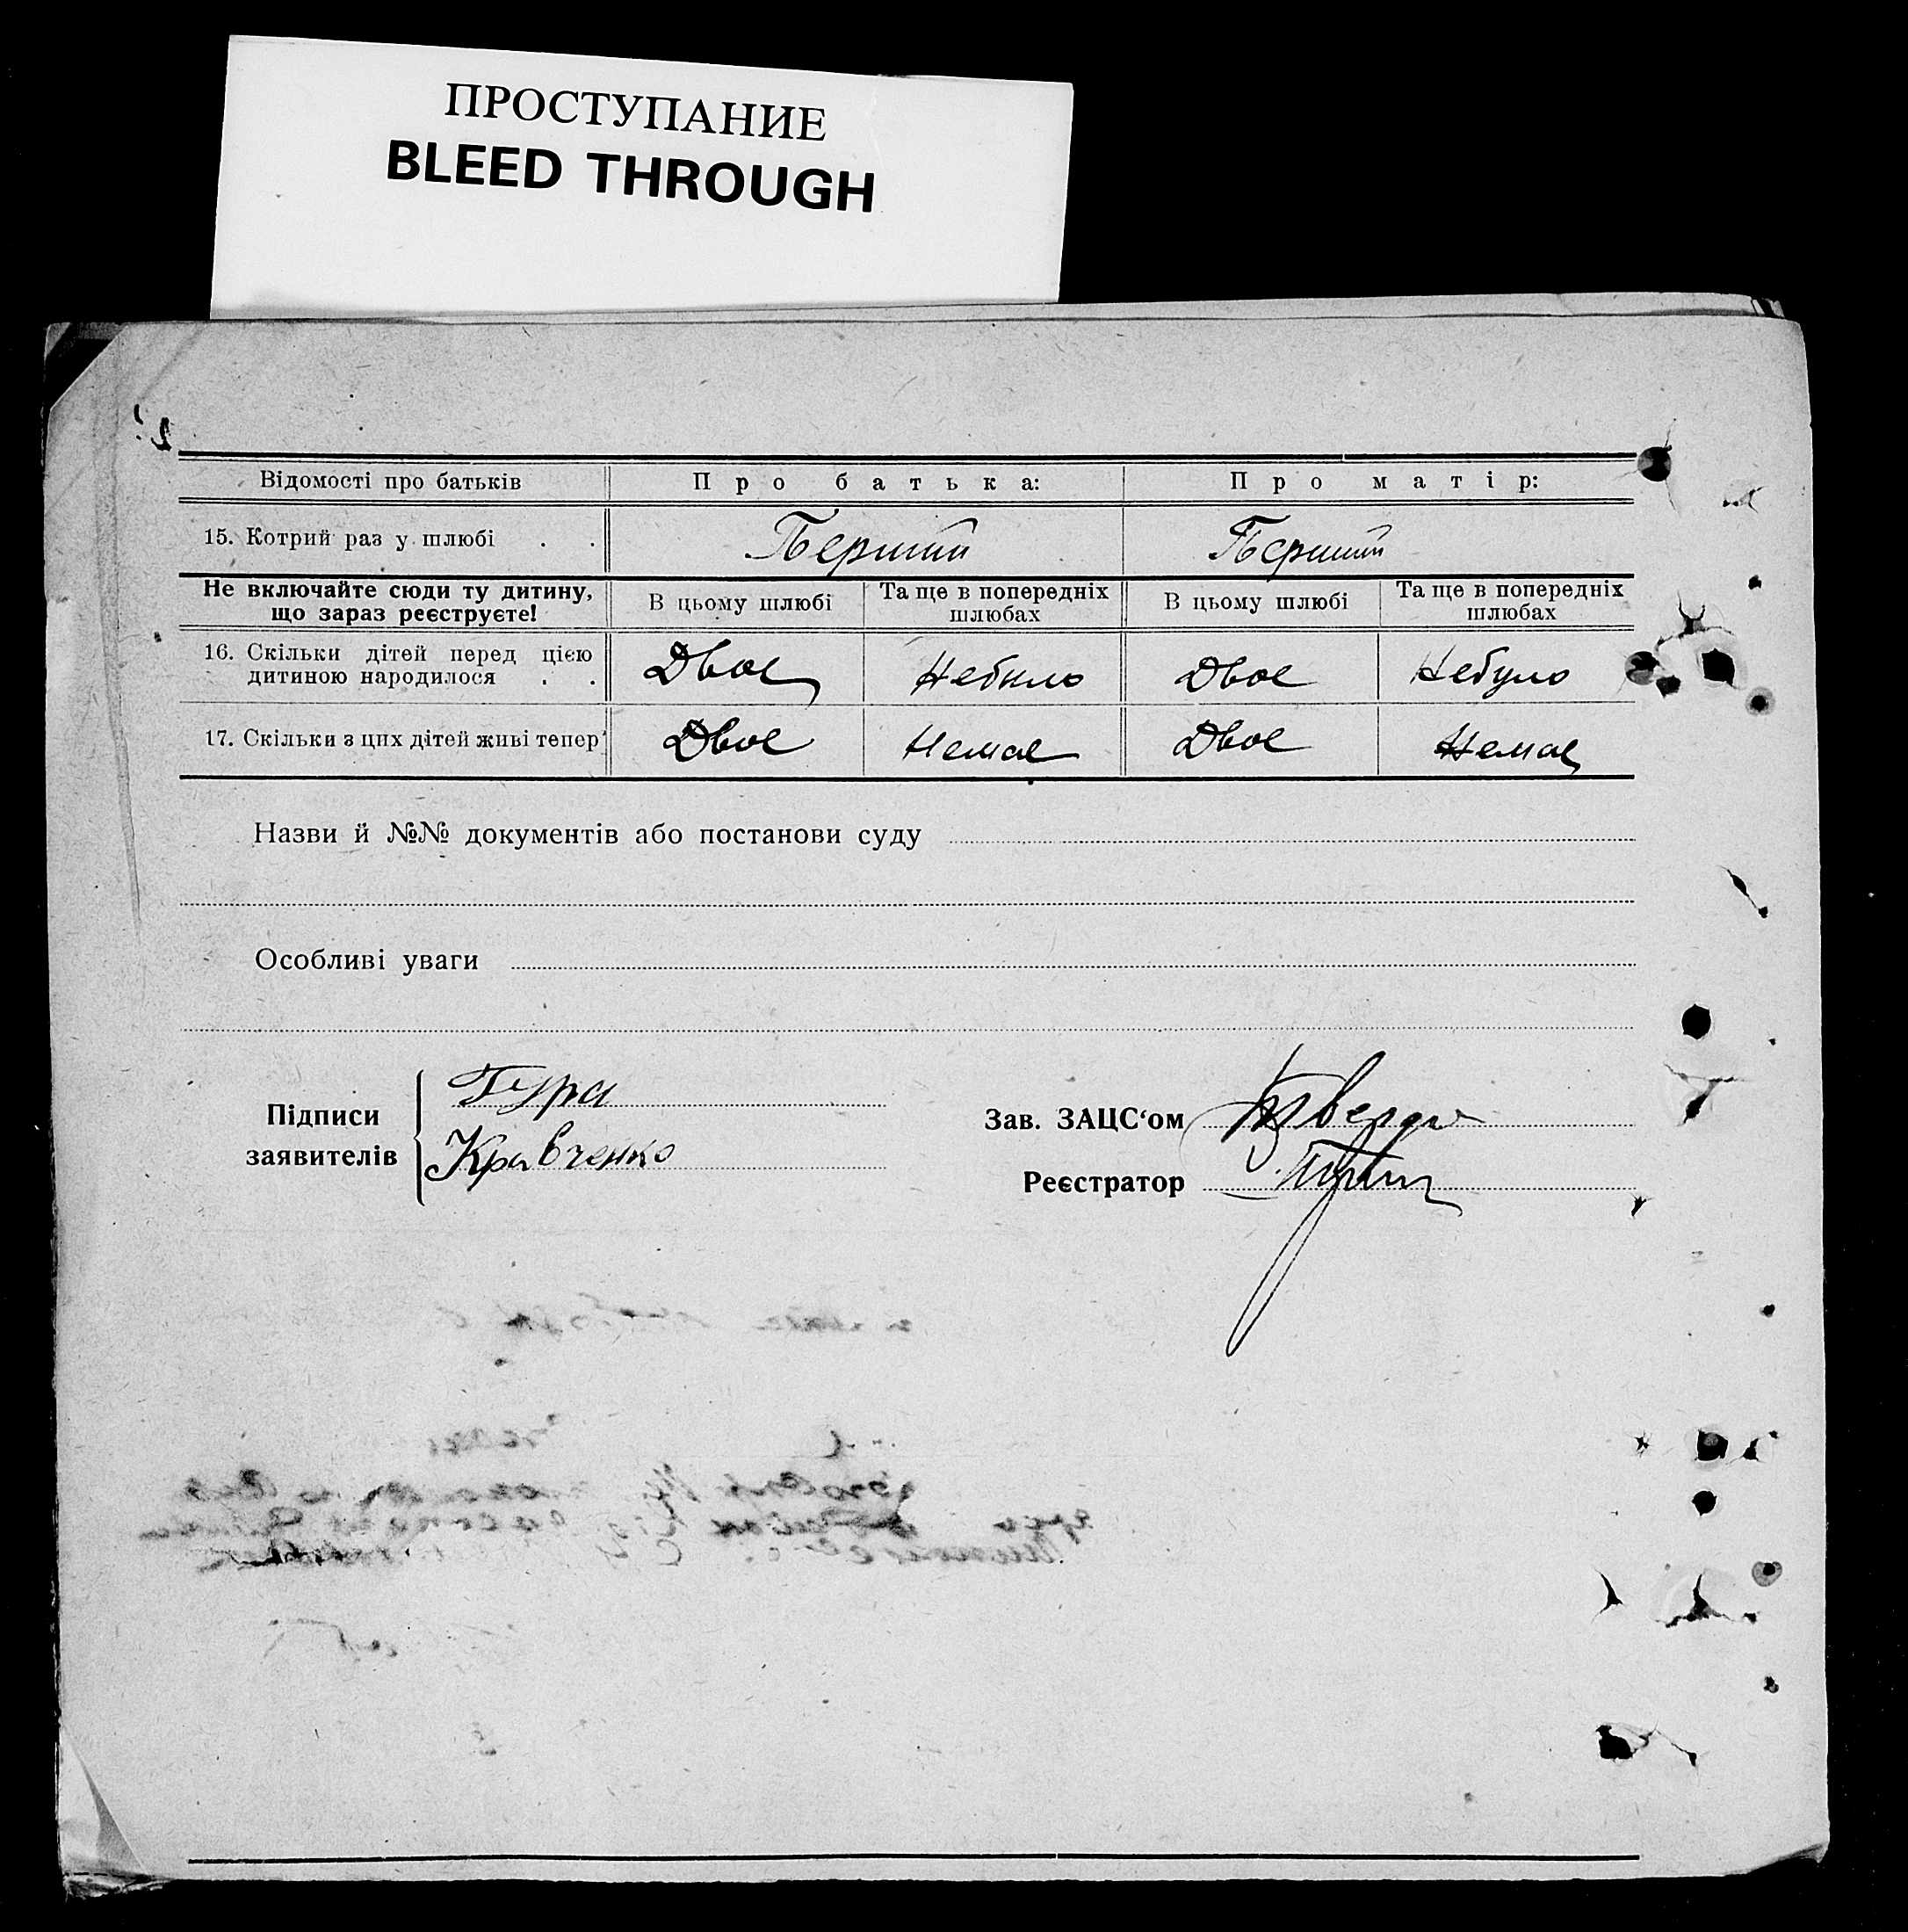 ПРОСТУПАНИЕ
BLEED THROUGH
Відомості про батьків Про батька: Про матір:
15. Котрий раз у шлюбі . . Перший Перший
Не включайте сюди ту дитину, що зараз реєструєте! В цьому шлюбі Та ще в попередніх шлюбах В цьому шлюбі Та ще в попередніх шлюбах
16. Скільки дітей перед цією дитиною народилося . . Двоє Небуло Двоє Небуло
17. Скільки з цих дітей живі тепер Двоє Немає Двоє Немає
Назви й №№ документів або постанови суду
Особливі уваги
Підписи заявителів
Гура
Кравченко
Зав. ЗАЦС‘ом
Реєстратор